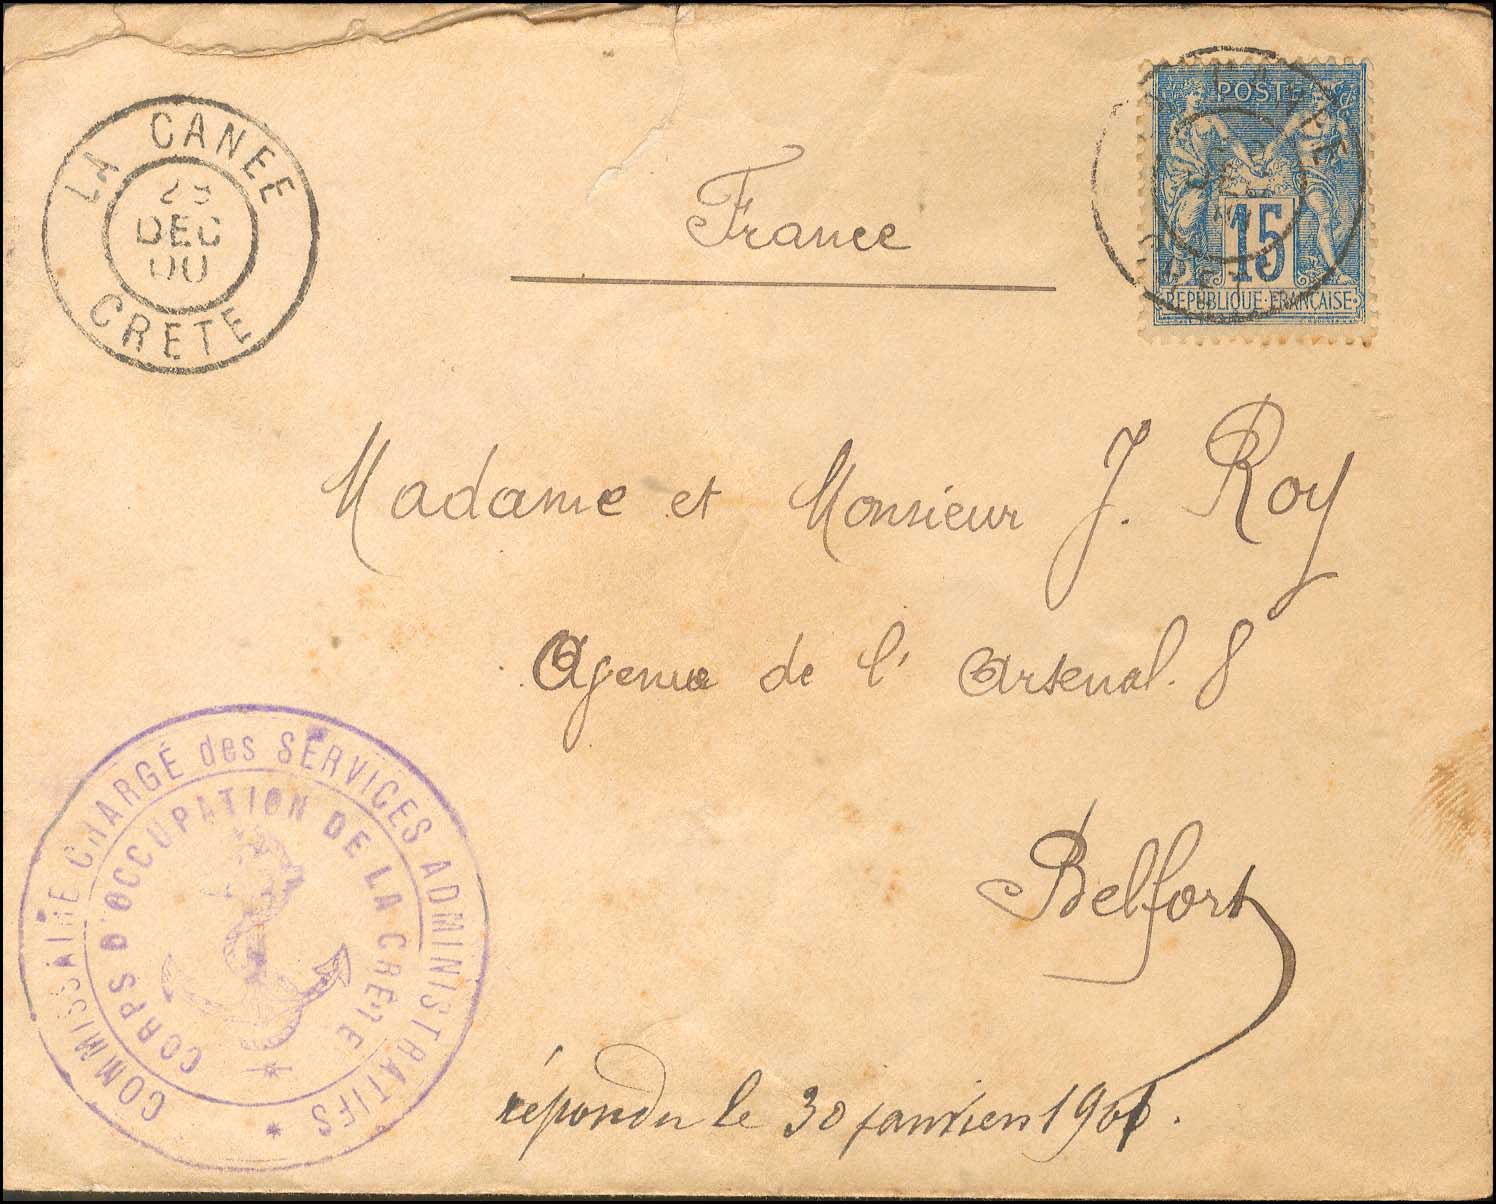 LA CANEE
23
DEC
00
CRETE
POSTE
15
REPUBLIQUE FRANÇAISE
France
Madame et Monsieur J. Roy
Agenue de l' Arsenal. 8
Belfort
répondu le 30 janvier 1901.
COMMISSAIRE CHARGÉ des SERVICES ADMINISTRATIFS
CORPS D'OCCUPATION DE LA CRÈTE